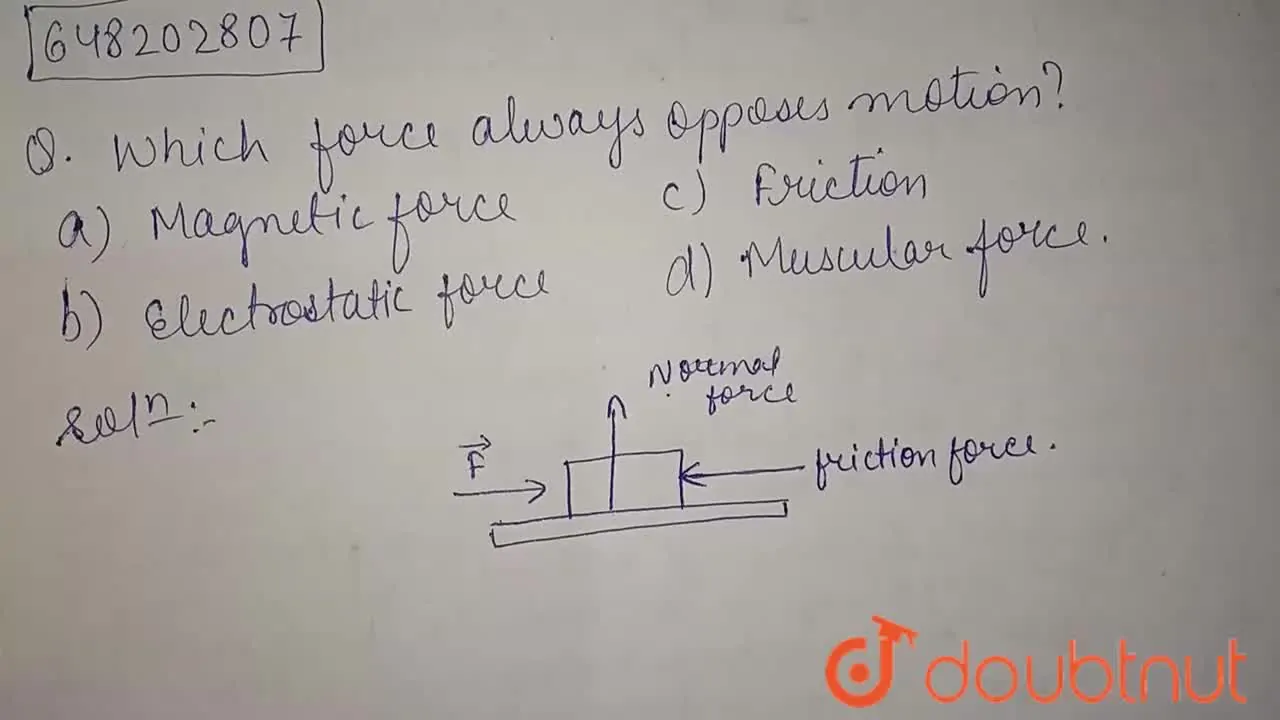 648202807
Q. Which force always opposes motion?
a) Magnetic force
c) Friction
b) Electrostatic force
d) Muscular force.
Soln:-
Normal
force
F
friction force.
doubtnut